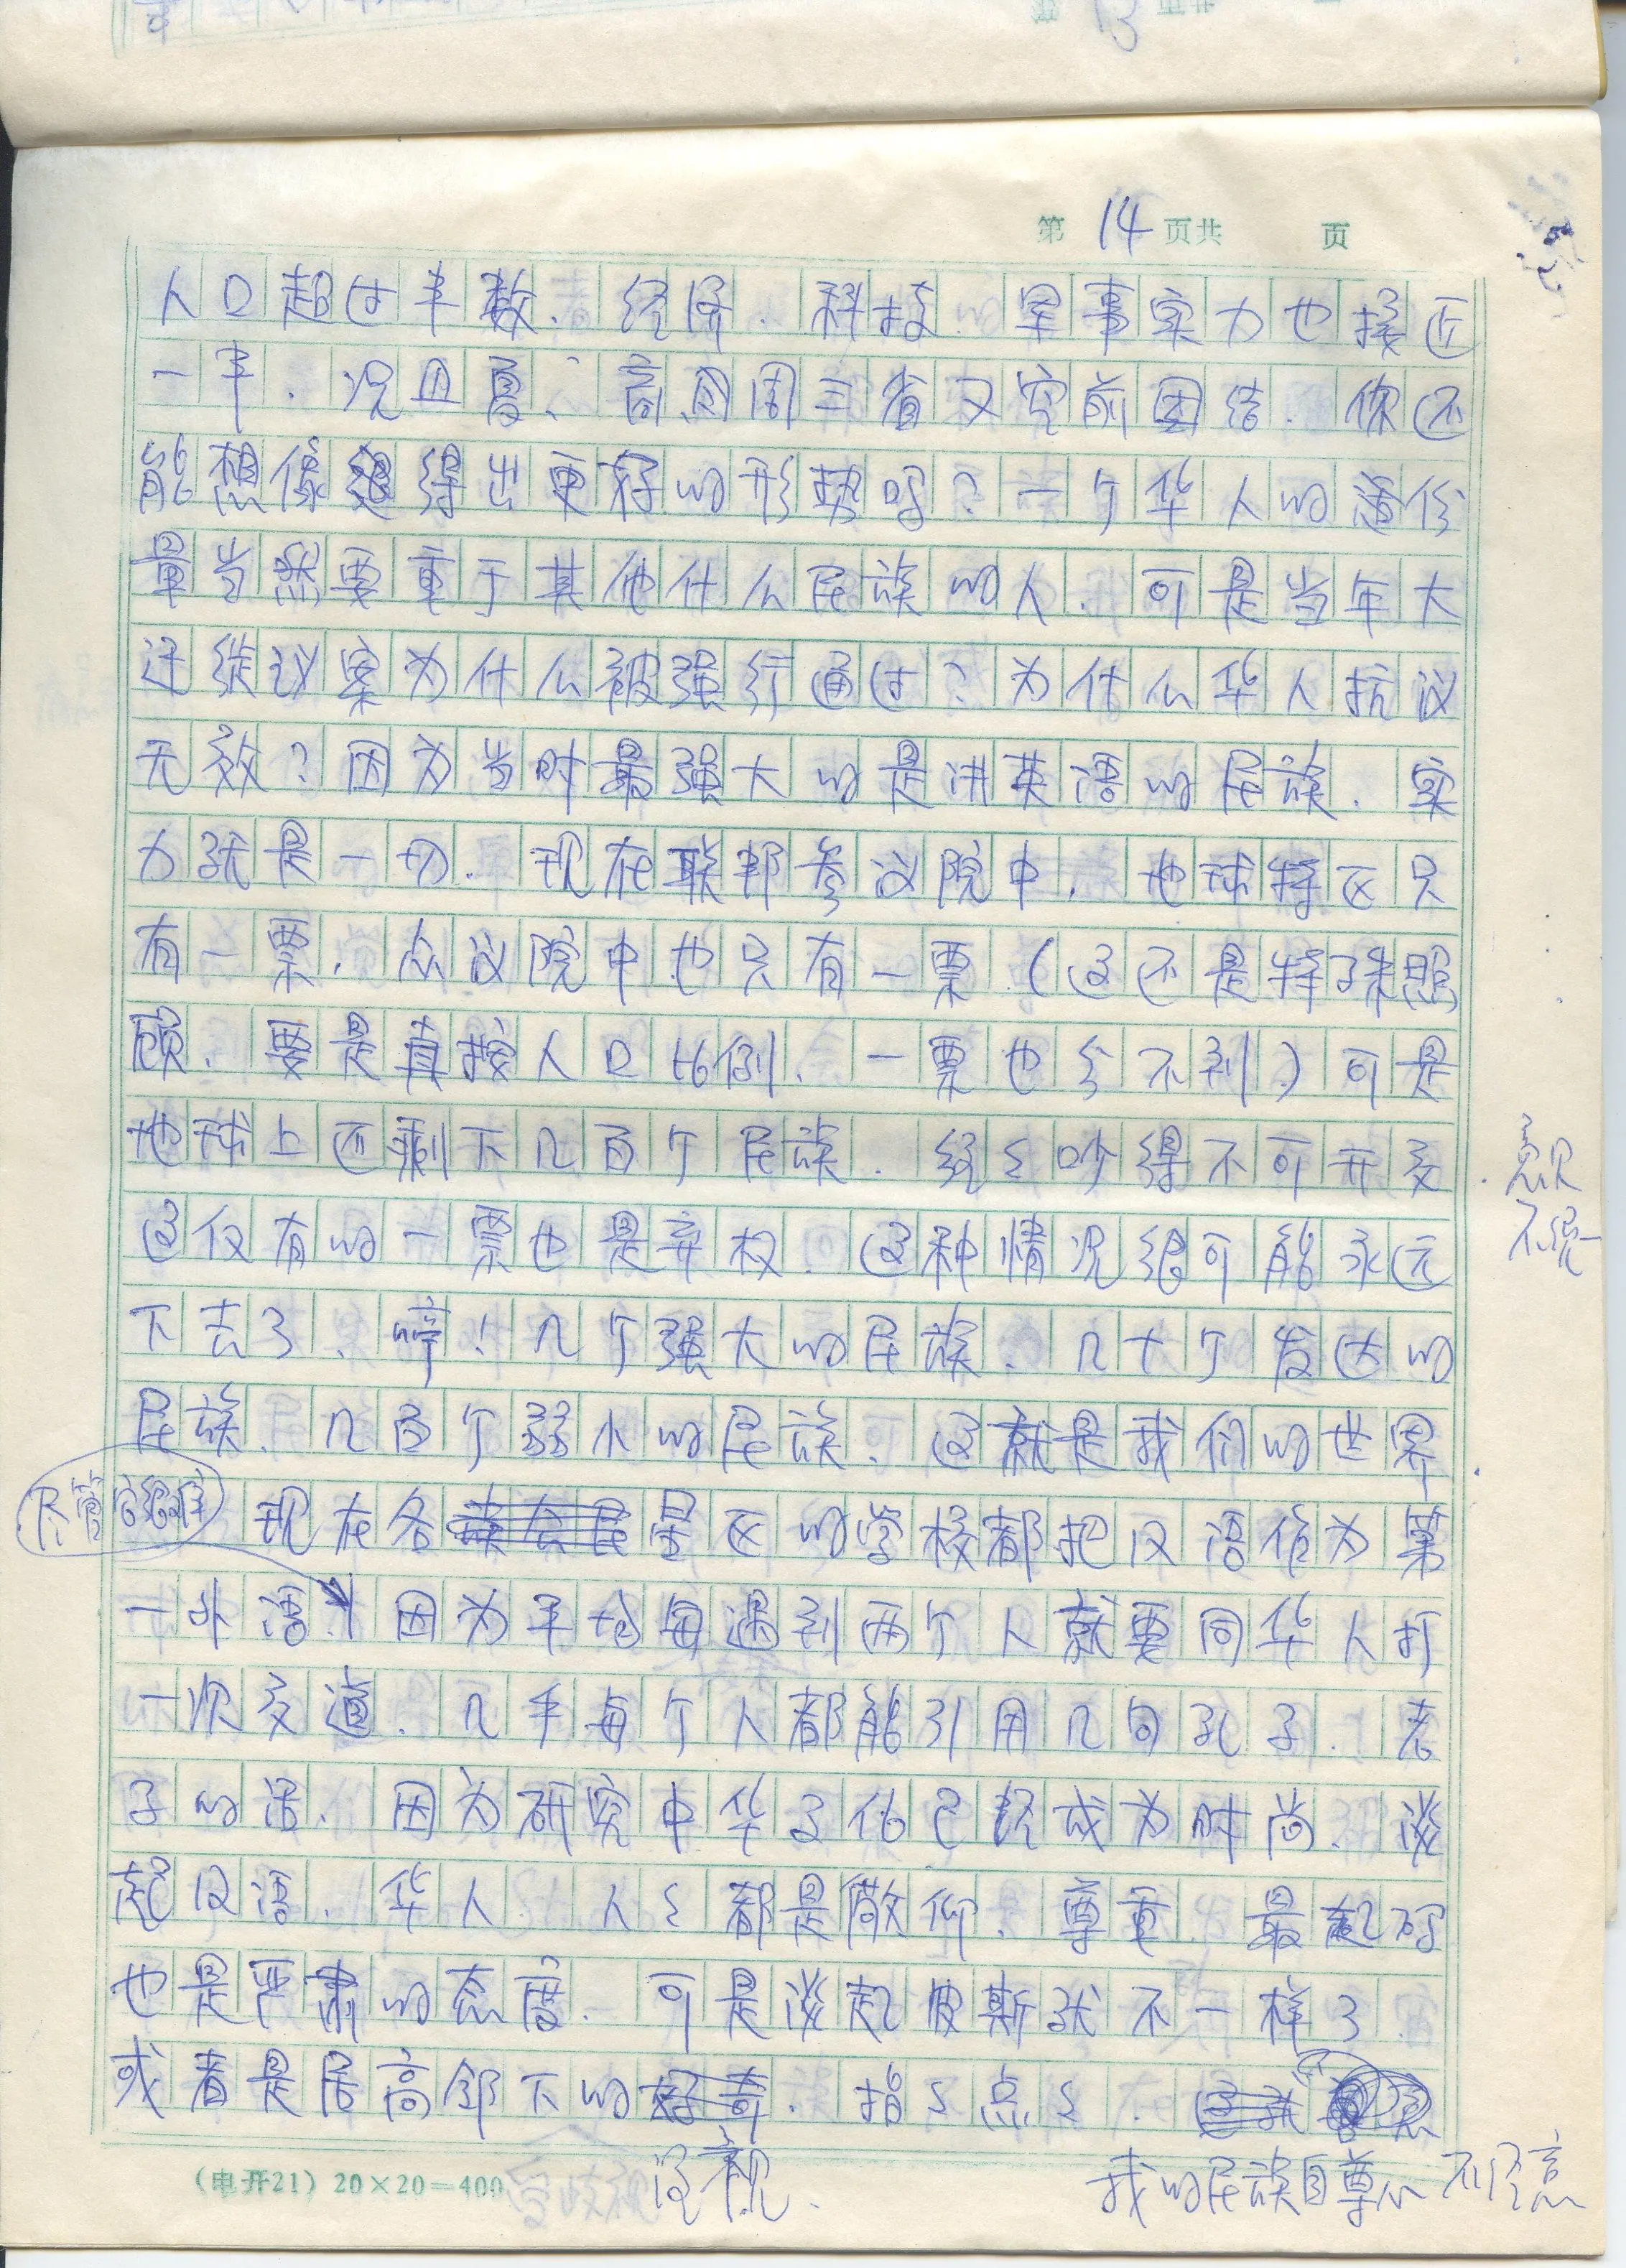 第 14 页共 页
人口超过半数、经济、科技、军事实力也接近
一半.况且夏、商、周三省又空前团结.你还
能想像得出更好的形势吗?一个华人的份
量当然要重于其他什么民族的人.可是当年大
迁徙议案为什么被强行通过?为什么华人抗议
无效?因为当时最强大的是讲英语的民族.实
力就是一切.现在联邦参议院中,地球特区只
有一票,众议院中也只有一票(这还是特殊照
顾、要是真按人口比例、一票也分不到)可是
地球上还剩下几百个民族.经常吵得不可开交.
意见不统一
这仅有的一票也是弃权.这种情况很可能永远
下去了、哼!几个强大的民族、几十个发达的
民族、几百个弱小的民族.这就是我们的世界.
尽管它很难
现在各星区的学校都把汉语作为第
一外语.因为平均每遇到两个人就要同华人打
一次交道.几乎每个人都能引用几句孔子、老
子的话、因为研究中华文化已经成为时尚、谈
起汉语、华人、人々都是敬仰、尊重、最起码
也是严肃的态度.可是谈起波斯就不一样了.
或者是居高临下的好奇.指々点々.
(电开21)20×20=400
我的民族自尊心 不经意